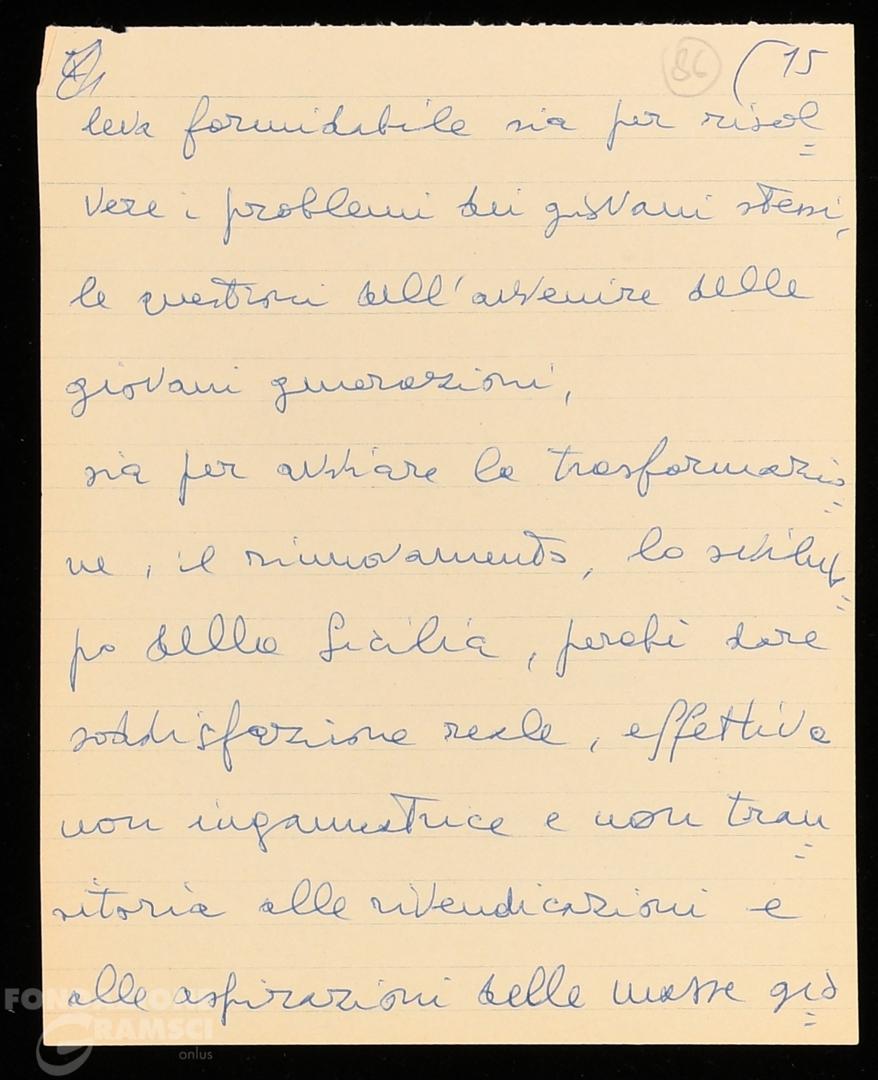 86 (15
leva formidabile sia per risol=
vere i problemi dei giovani stessi,
le questioni dell'avvenire delle
giovani generazioni,
sia per avviare la trasformazio=
ne, il rinnovamento, lo svilup=
po della Sicilia, perché dare
soddisfazione reale, effettiva
non ingannatrice e non tran=
sitoria alle rivendicazioni e
alle aspirazioni delle masse gio=
FONDAZIONE
GRAMSCI
onlus